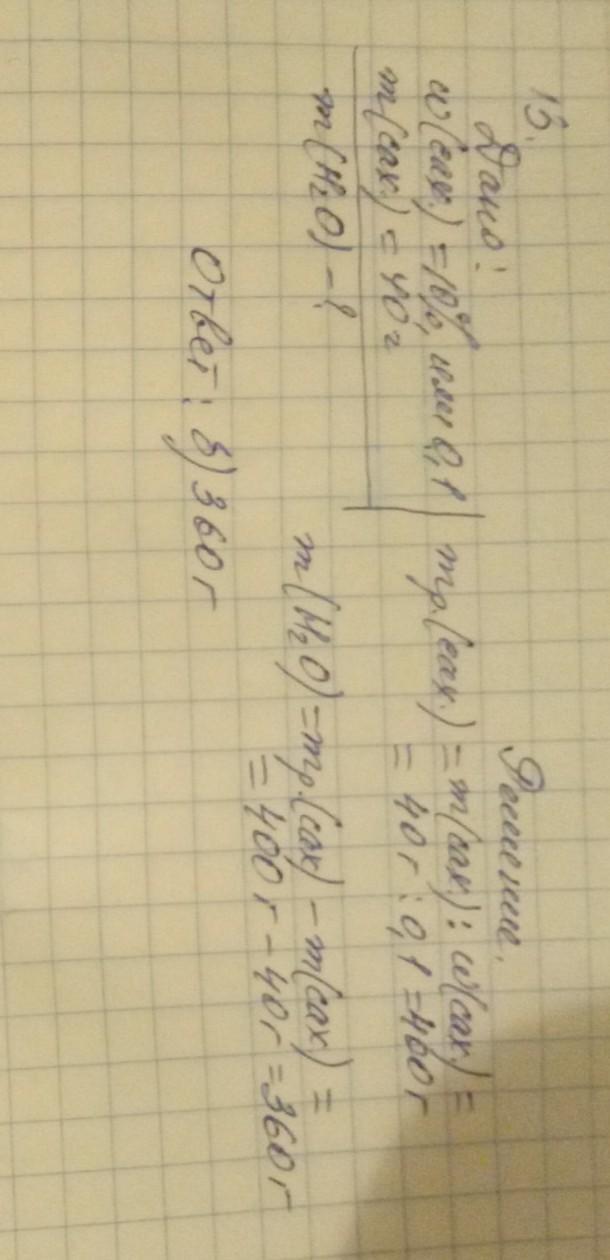 13.
Дано:
w(сах.) = 10%, или 0,1
m(сах.) = 40г
m(H₂O) - ?
Решение.
mр.(сах.) = m(сах.) : w(сах.) =
= 40г : 0,1 = 400г
m(H₂O) = mр.(сах) - m(сах) =
= 400г - 40г = 360г
Ответ: б) 360г